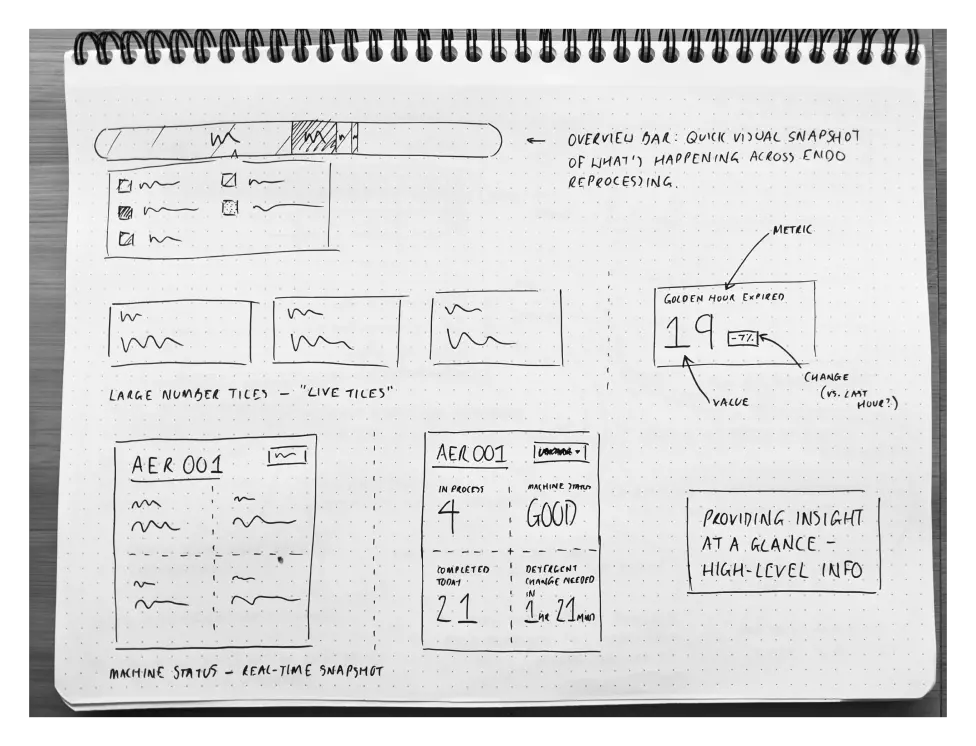 ← OVERVIEW BAR: QUICK VISUAL SNAPSHOT
OF WHAT'S HAPPENING ACROSS ENDO
REPROCESSING.
METRIC
GOLDEN HOUR EXPIRED
19 -7%
CHANGE
(VS. LAST
HOUR?)
VALUE
LARGE NUMBER TILES – "LIVE TILES"
AER 001
AER 001
IN PROCESS
4
MACHINE STATUS
GOOD
COMPLETED
TODAY
21
DETERGENT
CHANGE NEEDED
IN
1 HR 21 MIN
PROVIDING INSIGHT
AT A GLANCE –
HIGH-LEVEL INFO
MACHINE STATUS – REAL-TIME SNAPSHOT